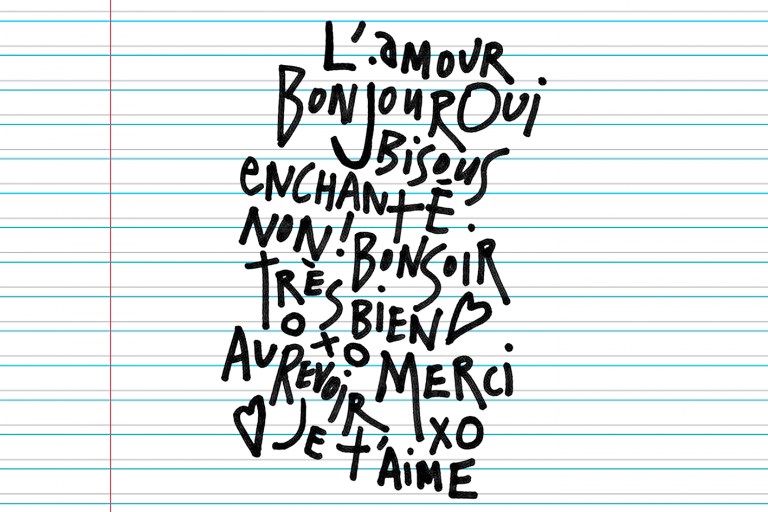 L'amour
Bonjour Oui
Bisous
enchanté.
Non! Bonsoir
Très Bien ♡
oxo
Au Revoir Merci
♡ Je t'aime xo